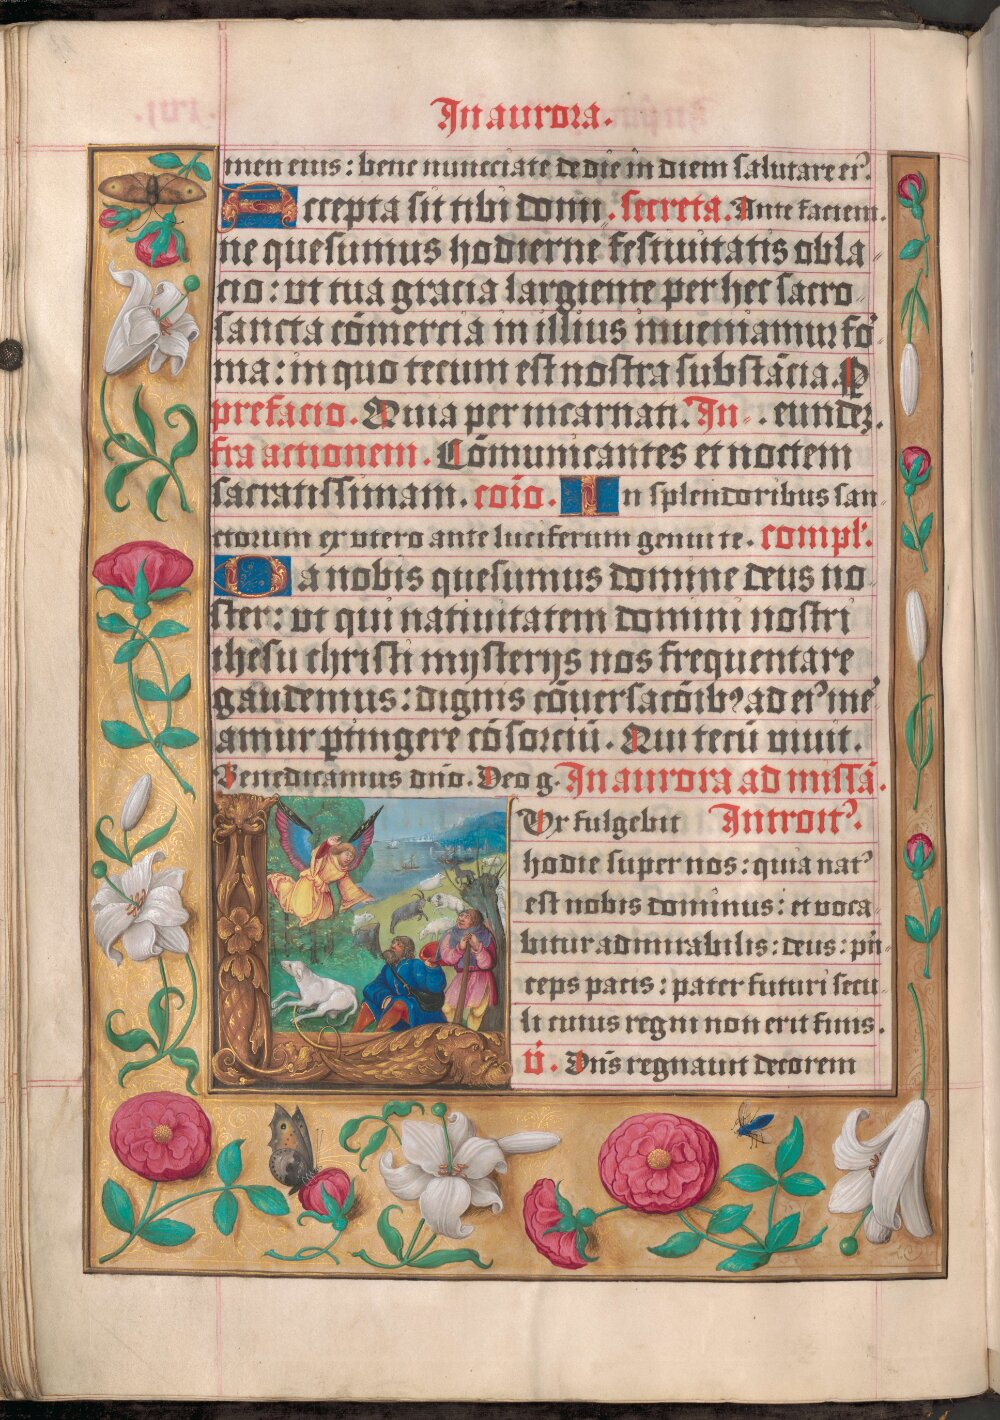 In aurora.
men eius: bene nuncciate de die in diem salutare eiꝰ.
Accepta sit tibi domi. secreta. Ante faciem.
ne quesumus hodierne festiuitatis obla
cio: ut tua gracia largiente per hec sacro
sancta cōmercia in illius inueniamur fō
ma: in quo tecum est nostra substācia. P
prefacio. Quia per incarnati. In eundē.
fra actionem. Cōmunicantes et noctem
sacratissimam. coīo. In splendoribus san
ctorum ex utero ante luciferum genui te. compl'.
Da nobis quesumus domine deus no
ster: ut qui natiuitatem domini nostri
ihesu christi mysterijs nos frequentare
gaudemus: dignis cōuersacōibꝰ ad eiꝰ me
amur ꝑtingere cōsorciū. Qui tecū uiuit.
Benedicamus dño. Deo g. In aurora ad missā.
Vx fulgebit Introitꝰ.
hodie super nos: quia natꝰ
est nobis dominus: et uoca
bitur admirabilis: deus: pñ
ceps pacis: pater futuri secu
li cuius regni non erit finis.
v̄. Dñs regnauit decorem